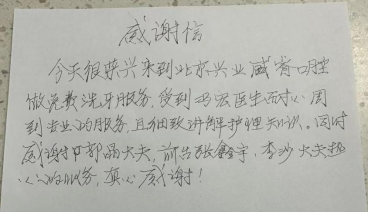 感谢信
今天很荣兴来到北京兴业威尔口腔
做免费洗牙服务,受到冯宏医生耐心周
到专业的服务,且细致讲解护理知识。同时
感谢郭晶大夫,前台张鑫宇,李沙大夫
心的服务,真心感谢!